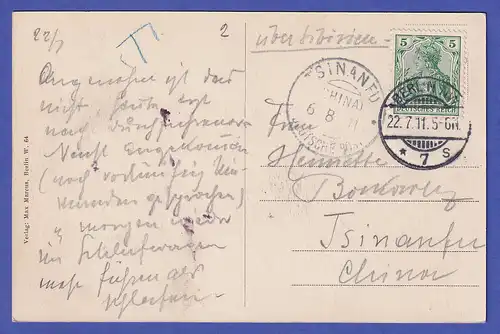 22/7
2
über Sibirien
5
DEUTSCHES REICH
BERLIN
22.7.11. 5-6N.
* 7 S
TSINANFU
(CHINA)
6 8 11
DEUTSCHE POST
Verlag: Max Marcus, Berlin W. 64
Angenehm ist das
nicht, heute erst
nach
Nacht angekommen
(noch
gesprochen)
morgen wieder
im Schlafwagen
mehr fahren als
schlafen.
Frau
Henriette
Tsinanfu
China